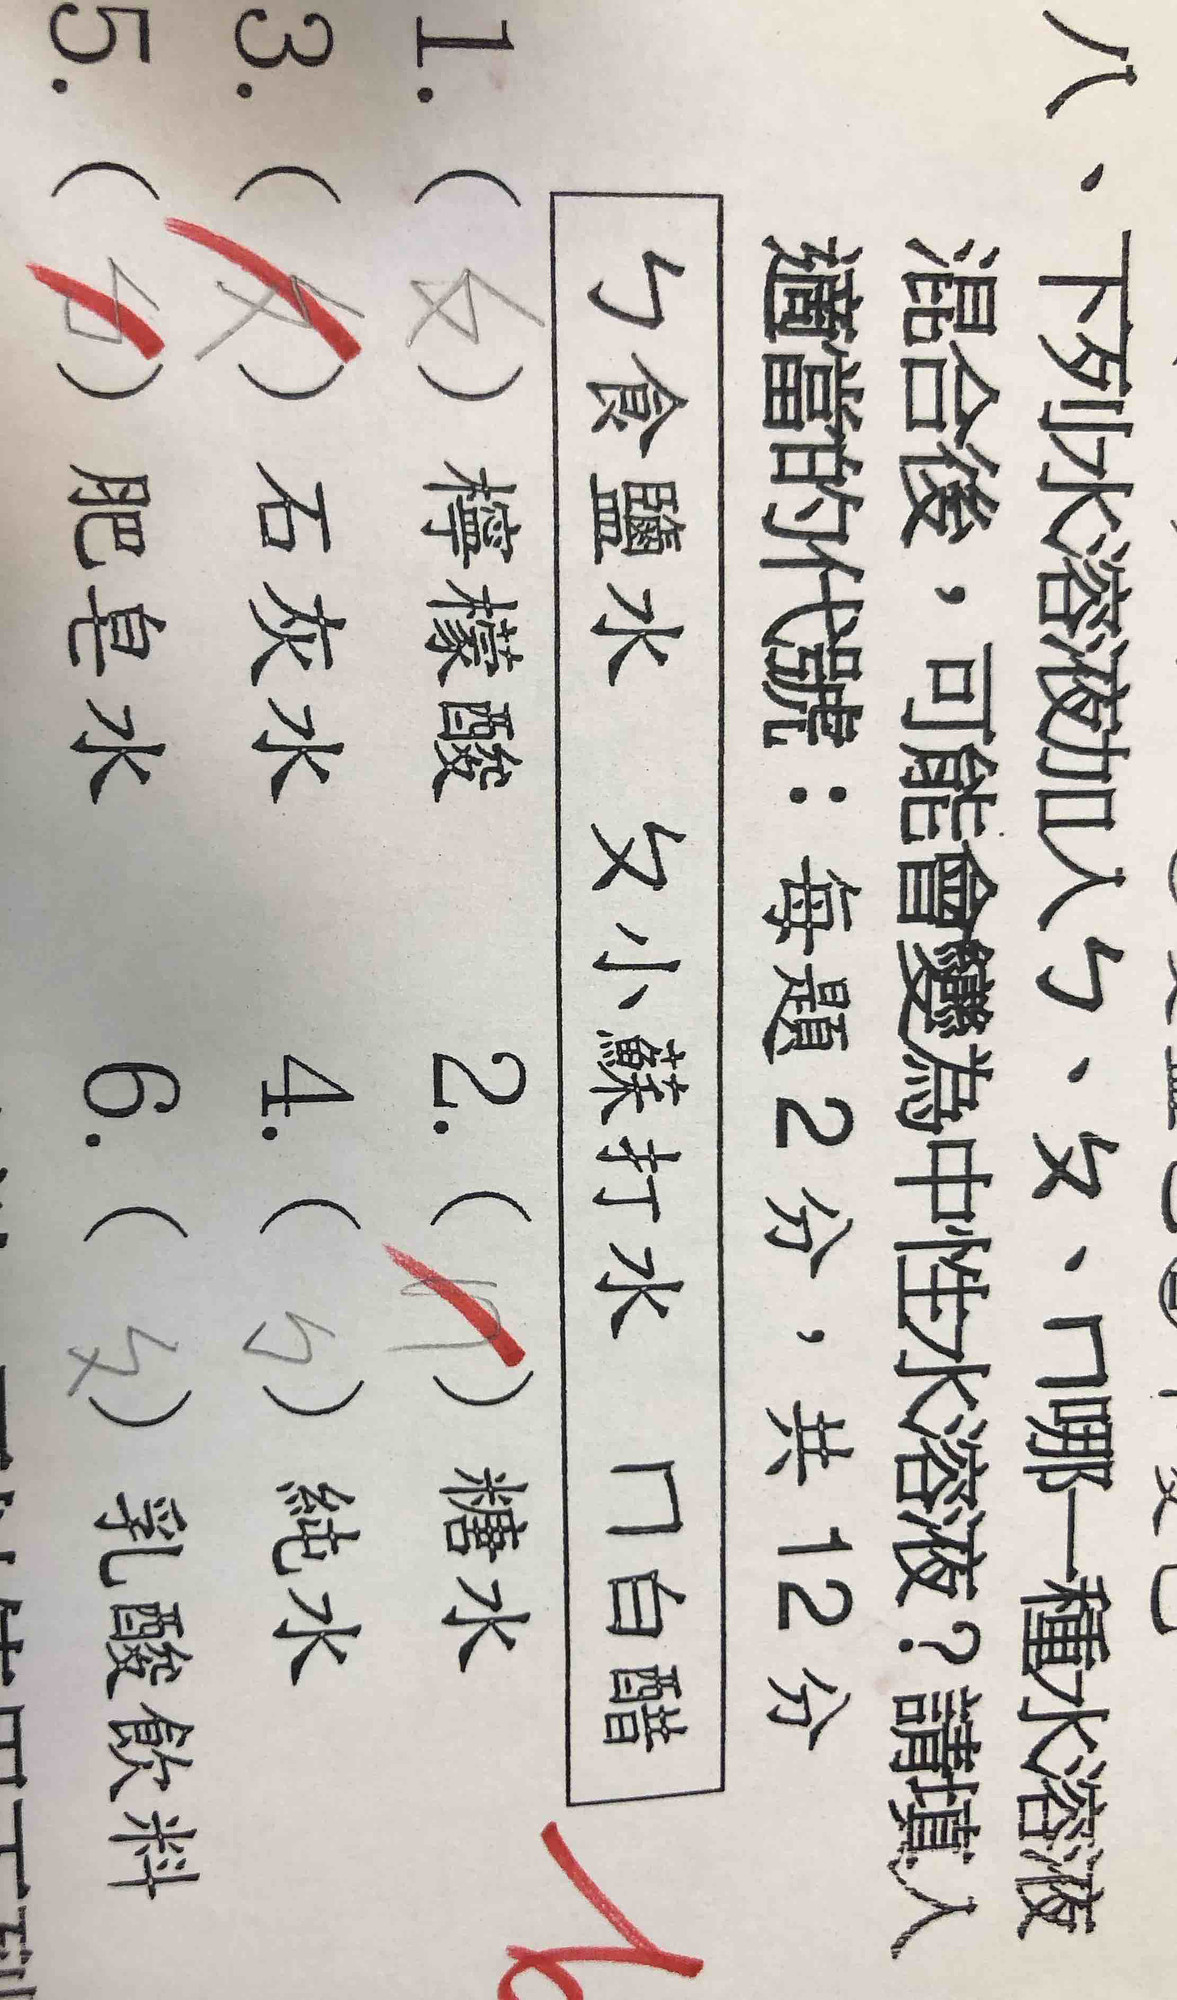 八、下列水溶液加入ㄅ、ㄆ、ㄇ哪一種水溶液
混合後，可能會變為中性水溶液？請填入
適當的代號：每題 2 分，共 12 分
ㄅ食鹽水 ㄆ小蘇打水 ㄇ白醋
1. (ㄆ) 檸檬酸 2. (ㄇ) 糖水
3. (ㄆ) 石灰水 4. (ㄅ) 純水
5. (ㄅ) 肥皂水 6. (ㄆ) 乳酸飲料
-6